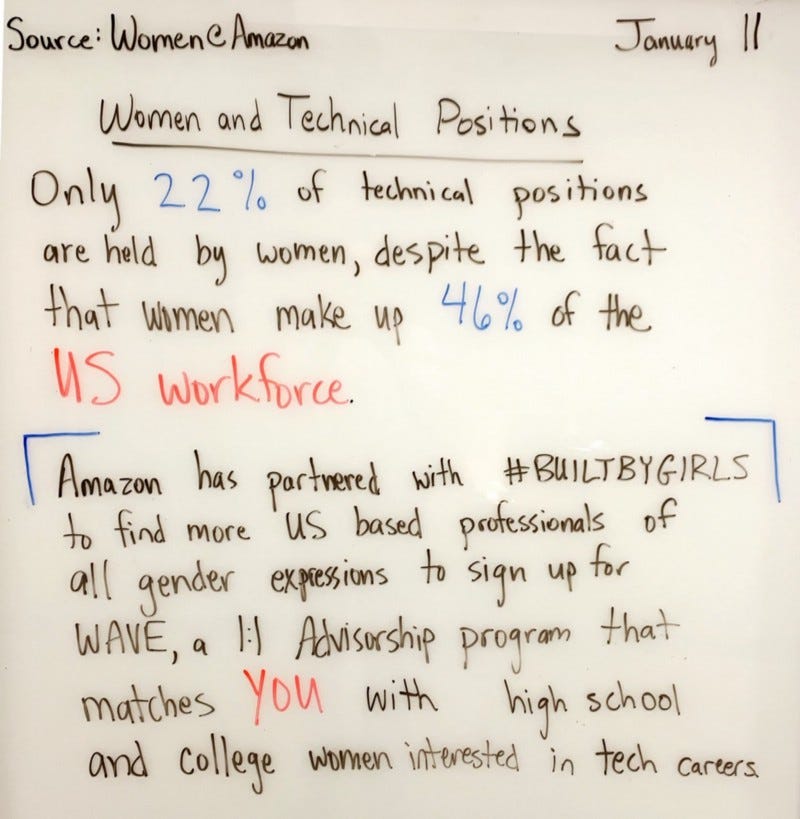 Source: Women@Amazon January 11
Women and Technical Positions
Only 22% of technical positions
are held by women, despite the fact
that women make up 46% of the
US workforce.
Amazon has partnered with #BUILTBYGIRLS
to find more US based professionals of
all gender expressions to sign up for
WAVE, a 1:1 Advisorship program that
matches YOU with high school
and college women interested in tech careers.